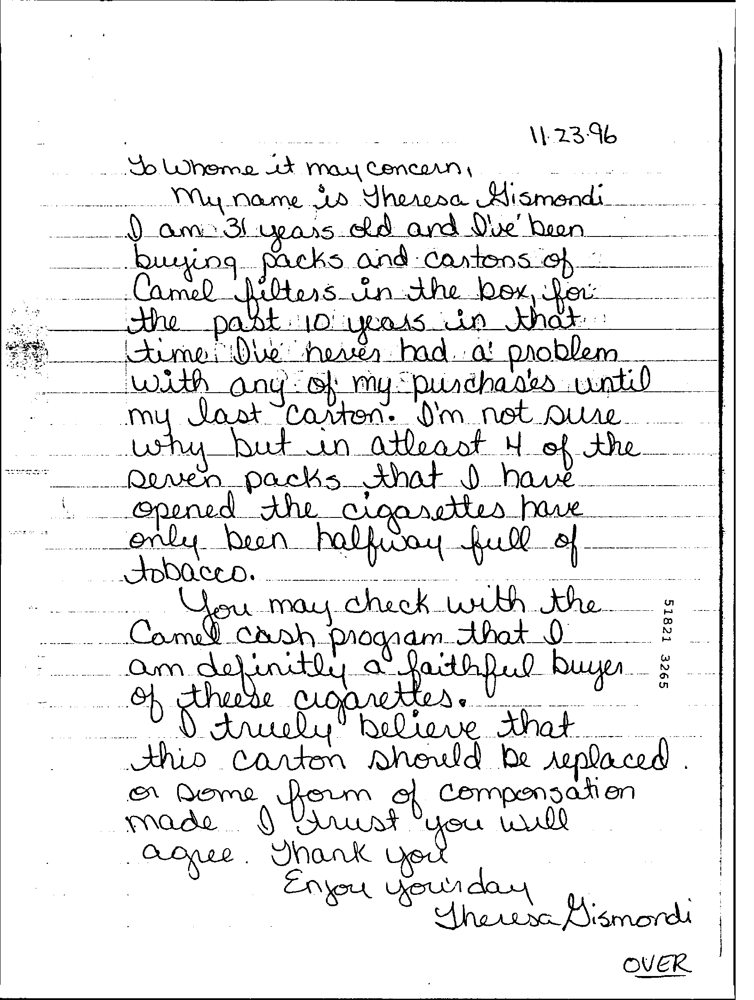 11-23-96
To Whome it may concern,
My name is Theresa Gismondi
I am 31 years old and I've been
buying packs and cartons of
Camel filters in the box, for
the past 10 years in that
time I've never had a problem
with any of my purchases until
my last carton. I'm not sure
why but in atleast 4 of the
seven packs that I have
opened the cigarettes have
only been halfway full of
tobacco.
You may check with the
Camel cash program that I
am definitly a faithful buyer
of theese cigarettes.
I truely believe that
this carton should be replaced
or some form of componsation
made I trust you will
agree. Thank you
Enjoy your day
Theresa Gismondi
OVER
51821 3265